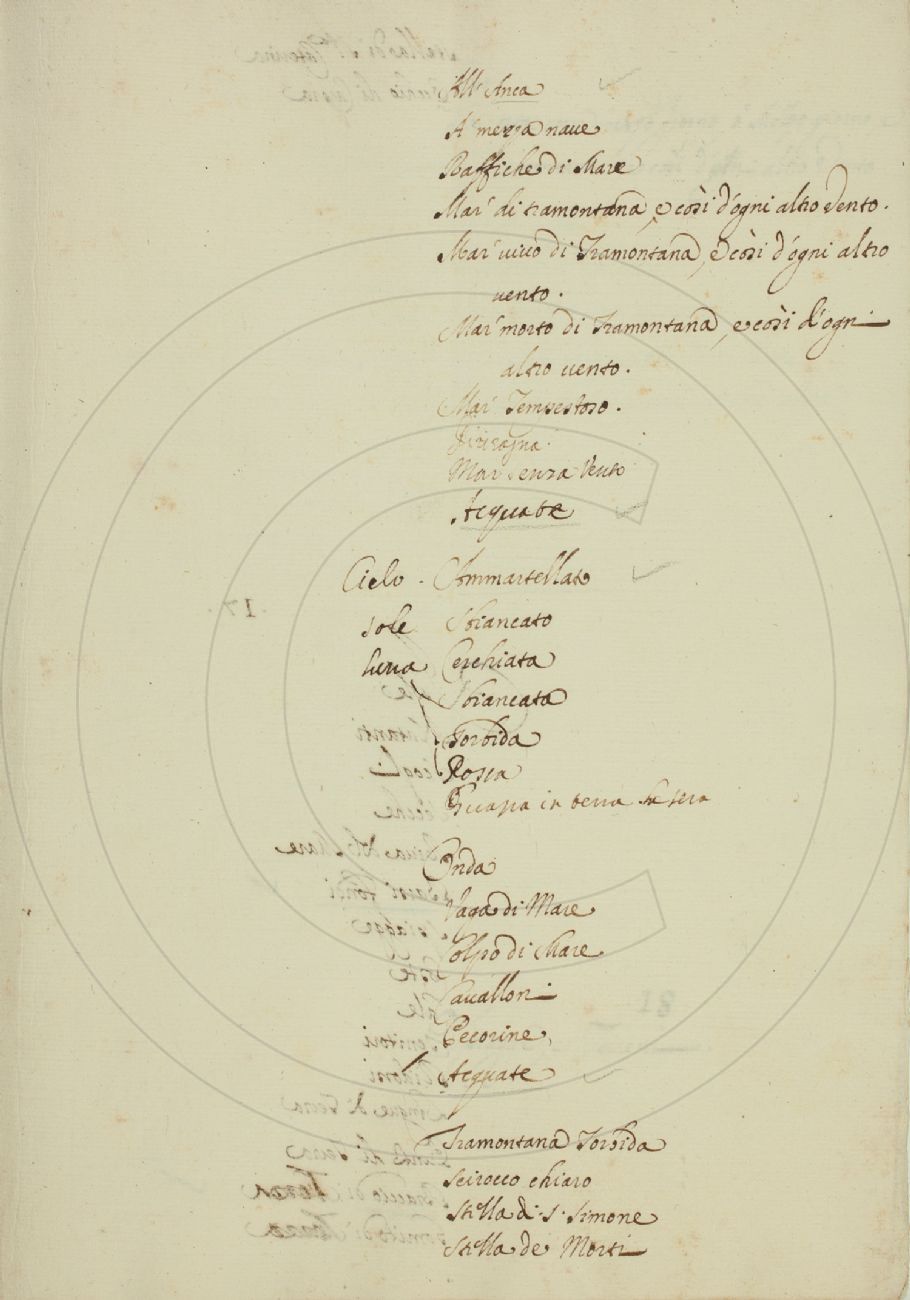 All' Anca
A' mezza naue
Raffiche di Mare
Mar' di tramontana, e così d'ogni altro Vento.
Mar' uiuo di Tramontana, e così d'ogni altro
uento.
Mar' morto di Tramontana, e così d'ogni
altro uento.
Mar' Tempestoso.
Mar senza Vento
Acquate
Cielo . Ammartellato
sole Sbiancato
luna Cerchiata
Sbiancata
Torbida
Rossa
in terra la sera
Onda
Vaga di Mare
Colpo di Mare
Caualloni
Pecorine
Acquate
Tramontana Torbida
scirocco chiaro
Stella di S. Simone
Stella de Morti